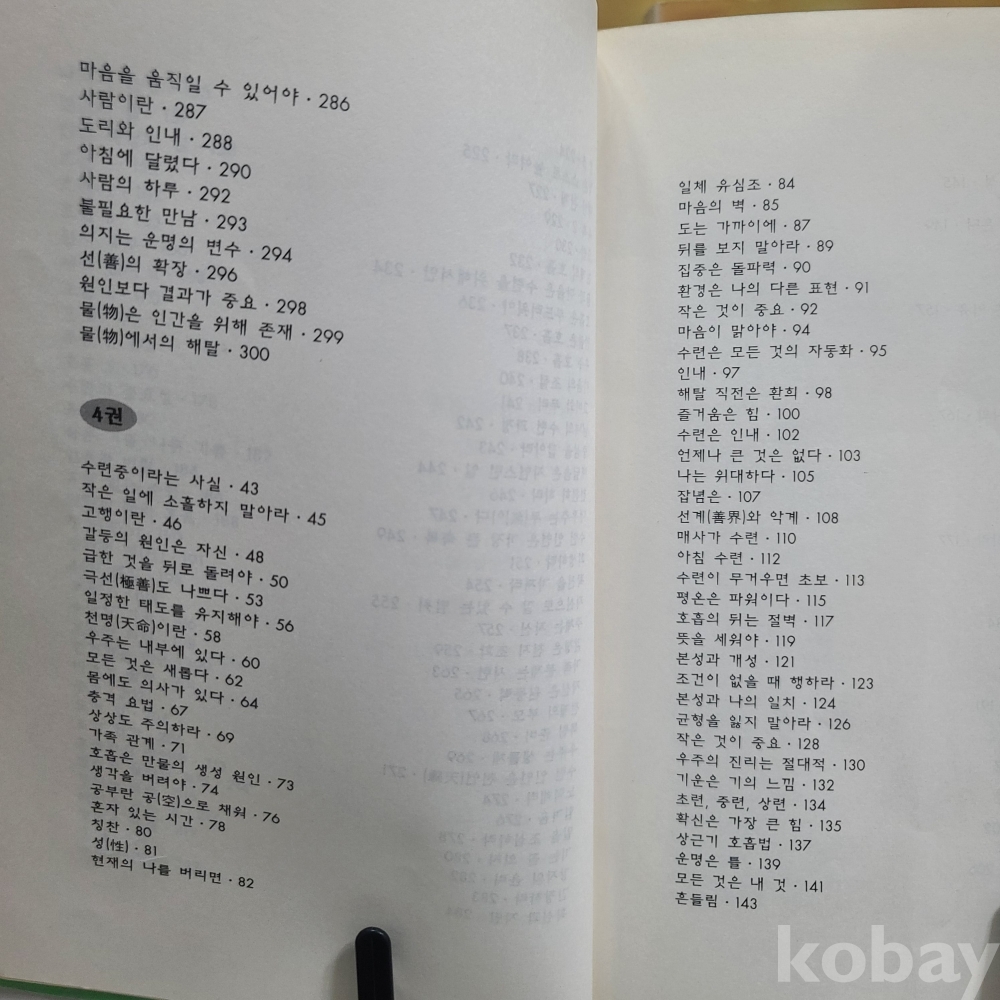 마음을 움직일 수 있어야 · 286
사람이란 · 287
도리와 인내 · 288
아침에 달렸다 · 290
사람의 하루 · 292
불필요한 만남 · 293
의지는 운명의 변수 · 294
선(善)의 확장 · 296
원인보다 결과가 중요 · 298
물(物)은 인간을 위해 존재 · 299
물(物)에서의 해탈 · 300
4권
수련중이라는 사실 · 43
작은 일에 소홀하지 말아라 · 45
고행이란 · 46
갈등의 원인은 자신 · 48
급한 것을 뒤로 돌려야 · 50
극선(極善)도 나쁘다 · 53
일정한 태도를 유지해야 · 56
천명(天命)이란 · 58
우주는 내부에 있다 · 60
모든 것은 새롭다 · 62
몸에도 의사가 있다 · 64
충격 요법 · 67
상상도 주의하라 · 69
가족 관계 · 71
호흡은 만물의 생성 원인 · 73
생각을 버려야 · 74
공부란 공(空)으로 채워 · 76
혼자 있는 시간 · 78
칭찬 · 80
성(性) · 81
현재의 나를 버리면 · 82
일체 유심조 · 84
마음의 벽 · 85
도는 가까이에 · 87
뒤를 보지 말아라 · 89
집중은 돌파력 · 90
환경은 나의 다른 표현 · 91
작은 것이 중요 · 92
마음이 맑아야 · 94
수련은 모든 것의 자동화 · 95
인내 · 97
해탈 직전은 환희 · 98
즐거움은 힘 · 100
수련은 인내 · 102
언제나 큰 것은 없다 · 103
나는 위대하다 · 105
잡념은 · 107
선계(善界)와 악계 · 108
매사가 수련 · 110
아침 수련 · 112
수련이 무거우면 초보 · 113
평온은 파워이다 · 115
호흡의 뒤는 절벽 · 117
뜻을 세워야 · 119
본성과 개성 · 121
조건이 없을 때 행하라 · 123
본성과 나의 일치 · 124
균형을 잃지 말아라 · 126
작은 것이 중요 · 128
우주의 진리는 절대적 · 130
기운은 기의 느낌 · 132
초련, 중련, 상련 · 134
확신은 가장 큰 힘 · 135
상근기 호흡법 · 137
운명은 틀 · 139
모든 것은 내 것 · 141
흔들림 · 143
kobay